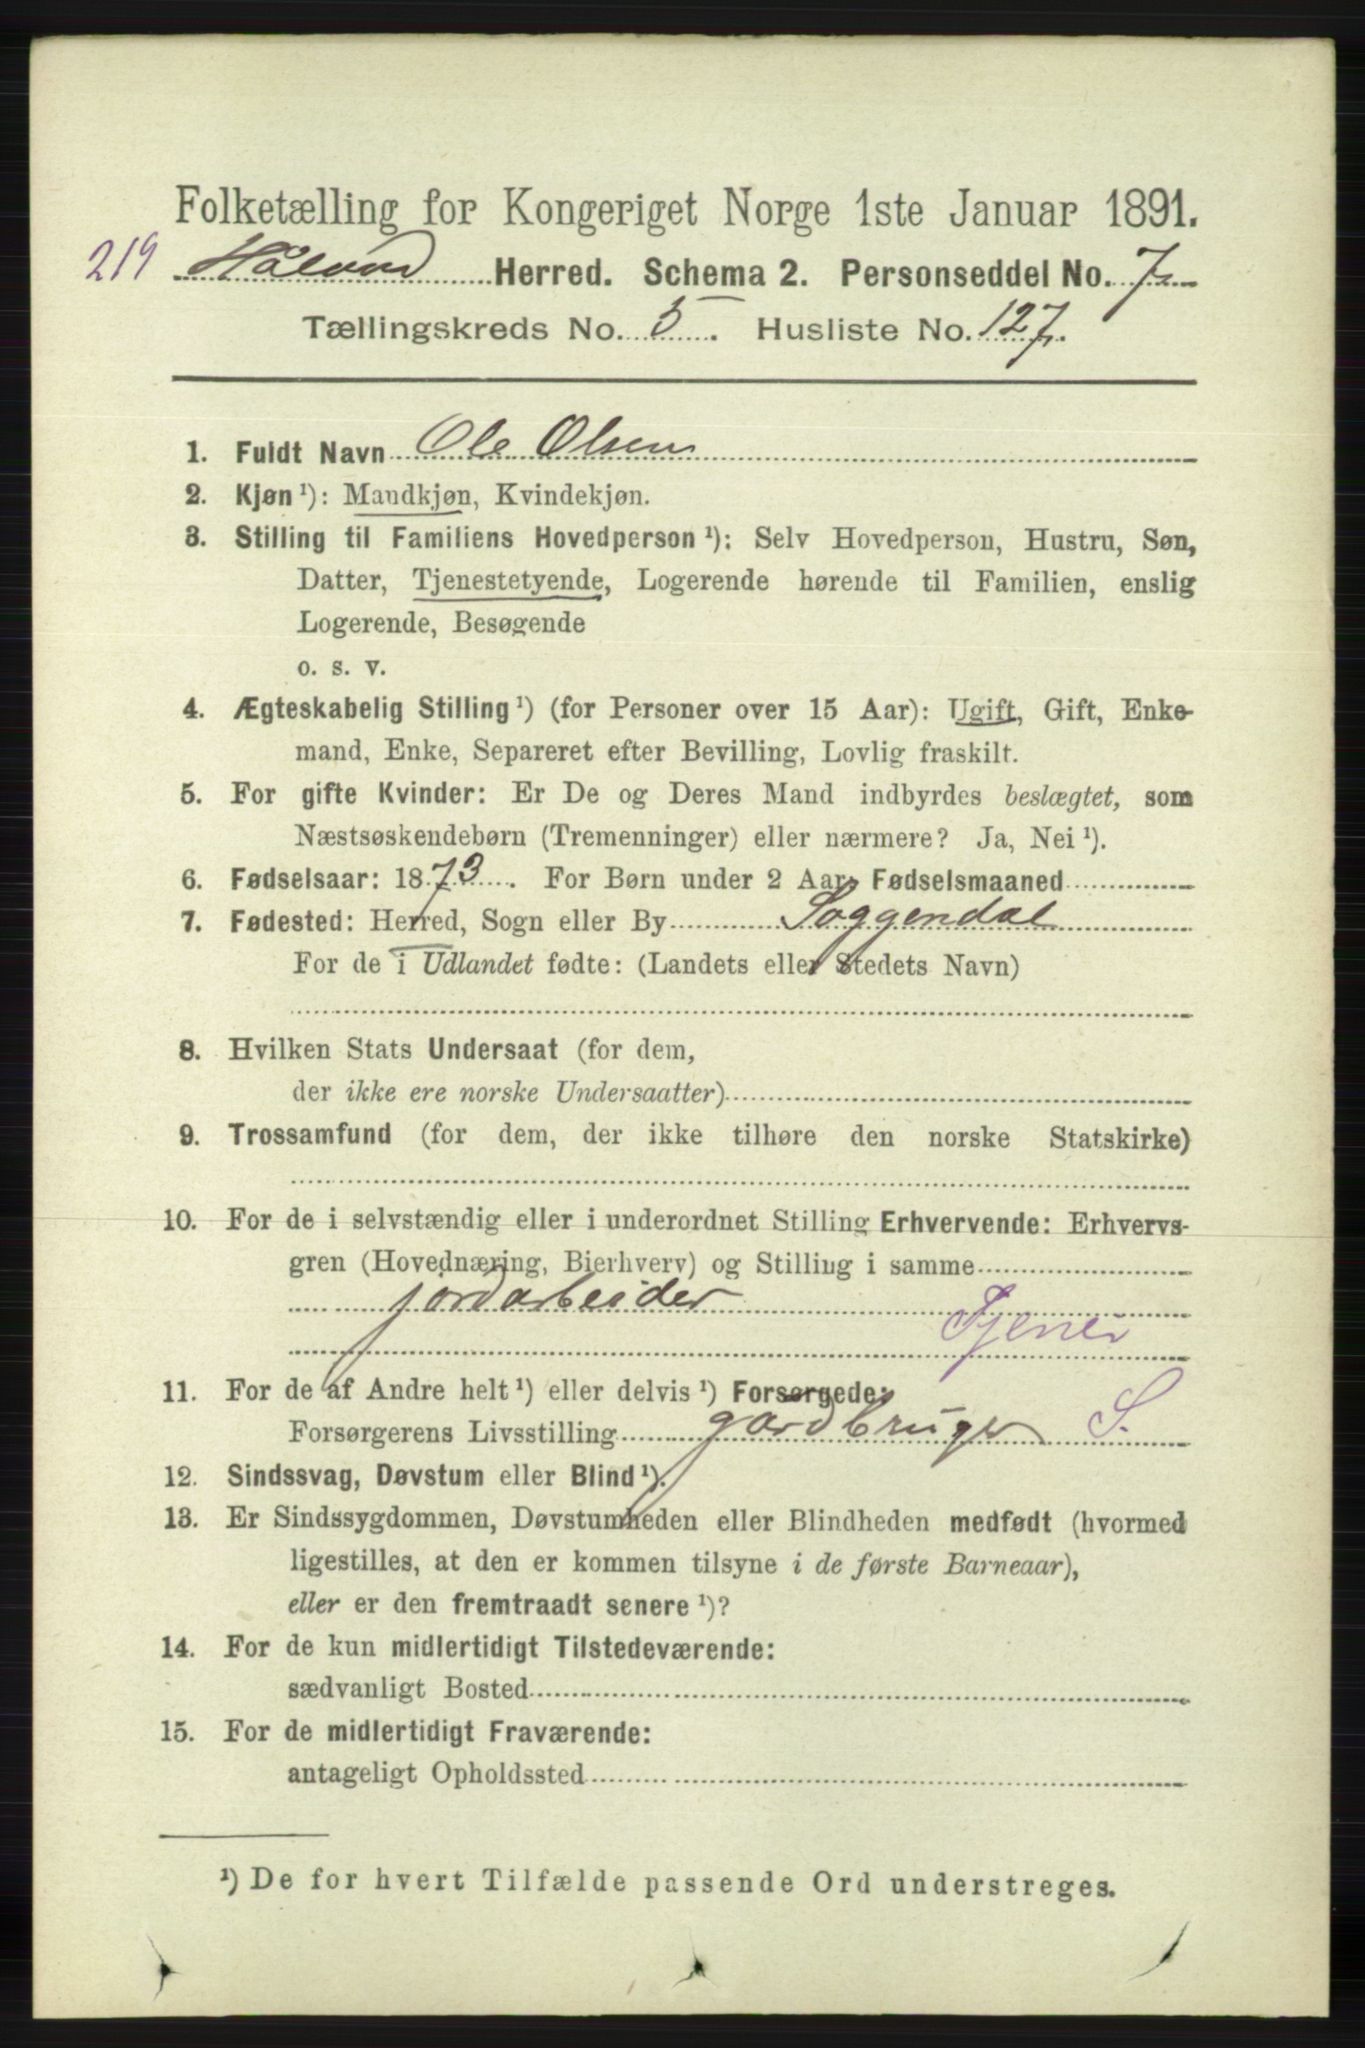 Folketælling for Kongeriget Norge 1ste Januar 1891.
219 Håland Herred. Schema 2. Personseddel No. 7
Tællingskreds No. 5. Husliste No. 127.
1. Fuldt Navn Ole Olsen
2. Kjøn ¹): Mandkjøn, Kvindekjøn.
3. Stilling til Familiens Hovedperson ¹): Selv Hovedperson, Hustru, Søn,
Datter, Tjenestetyende, Logerende hørende til Familien, enslig
Logerende, Besøgende
o. s. v.
4. Ægteskabelig Stilling ¹) (for Personer over 15 Aar): Ugift, Gift, Enke-
mand, Enke, Separeret efter Bevilling, Lovlig fraskilt.
5. For gifte Kvinder: Er De og Deres Mand indbyrdes beslægtet, som
Næstsøskendebørn (Tremenninger) eller nærmere? Ja, Nei ¹).
6. Fødselsaar: 1873. For Børn under 2 Aar, Fødselsmaaned
7. Fødested: Herred, Sogn eller By Soggendal
For de i Udlandet fødte: (Landets eller Stedets Navn)
8. Hvilken Stats Undersaat (for dem,
der ikke ere norske Undersaatter)
9. Trossamfund (for dem, der ikke tilhøre den norske Statskirke)
10. For de i selvstændig eller i underordnet Stilling Erhvervende: Erhvervs-
gren (Hovednæring, Bierhverv) og Stilling i samme
jordarbeider
Tjener
11. For de af Andre helt ¹) eller delvis ¹) Forsørgede:
Forsørgerens Livsstilling gardbruger S.
12. Sindssvag, Døvstum eller Blind ¹).
13. Er Sindssygdommen, Døvstumheden eller Blindheden medfødt (hvormed
ligestilles, at den er kommen tilsyne i de første Barneaar),
eller er den fremtraadt senere ¹)?
14. For de kun midlertidigt Tilstedeværende:
sædvanligt Bosted
15. For de midlertidigt Fraværende:
antageligt Opholdssted
¹) De for hvert Tilfælde passende Ord understreges.